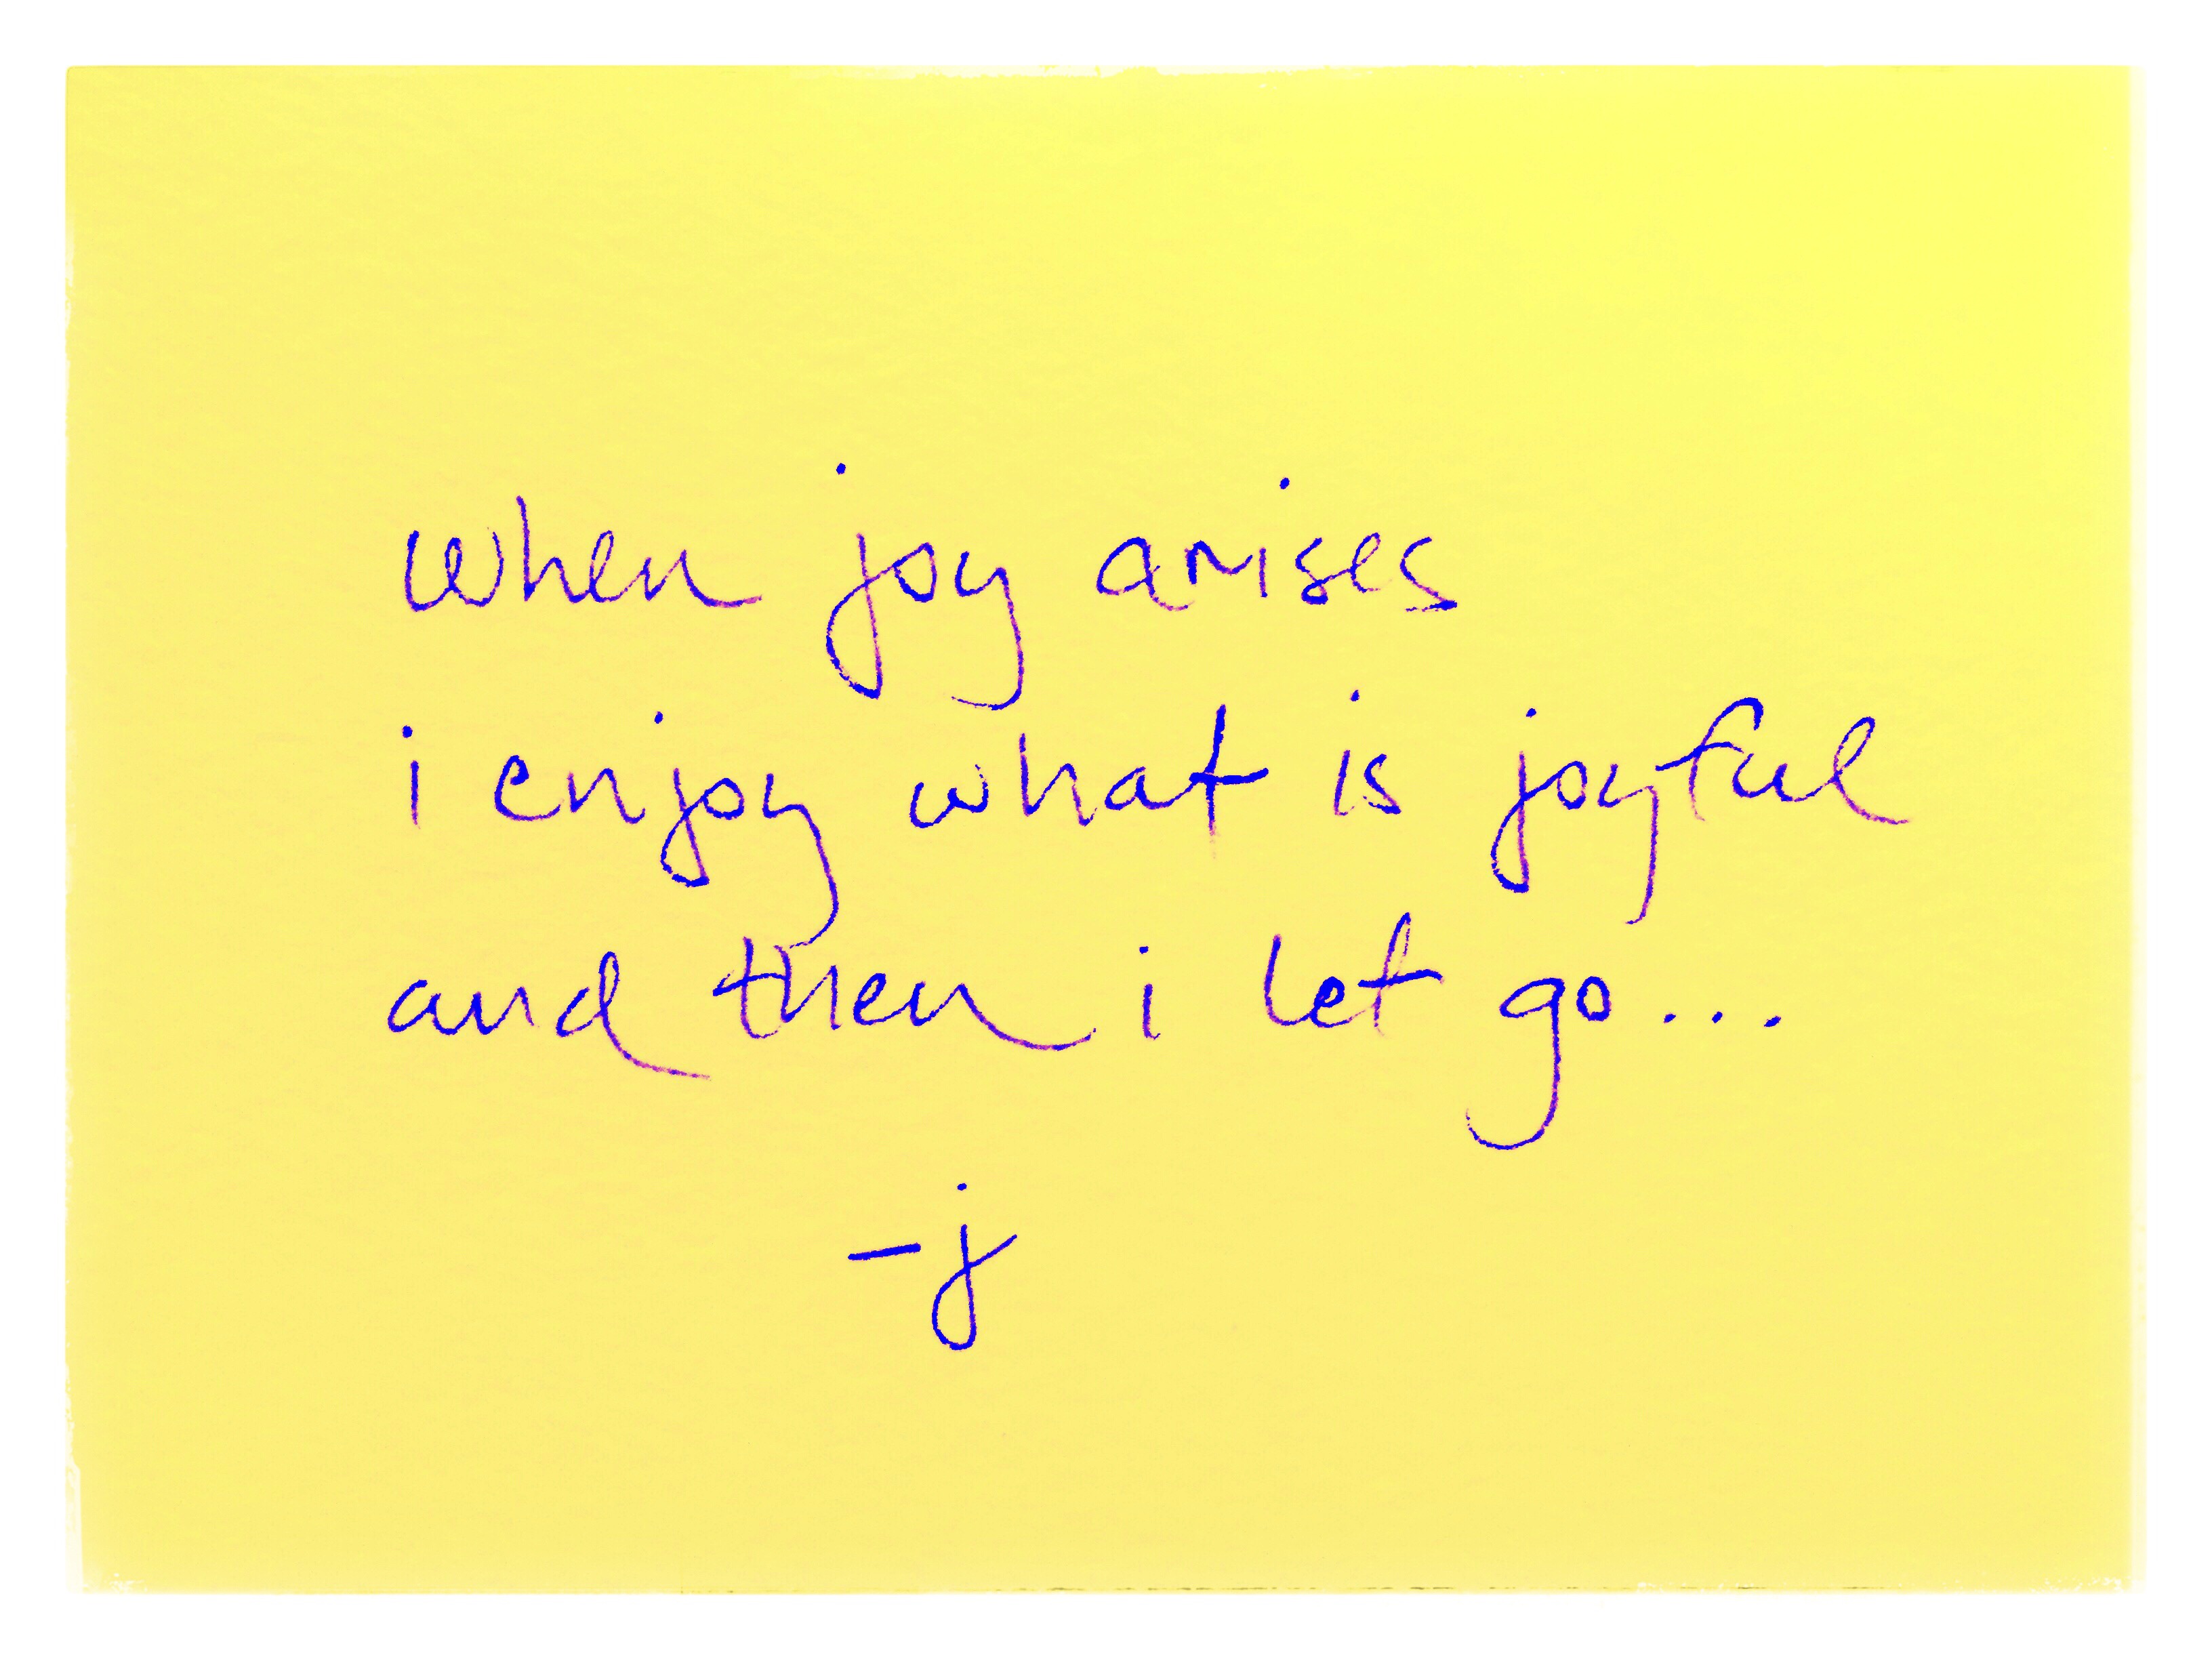 when joy arises
i enjoy what is joyful
and then i let go...
-j